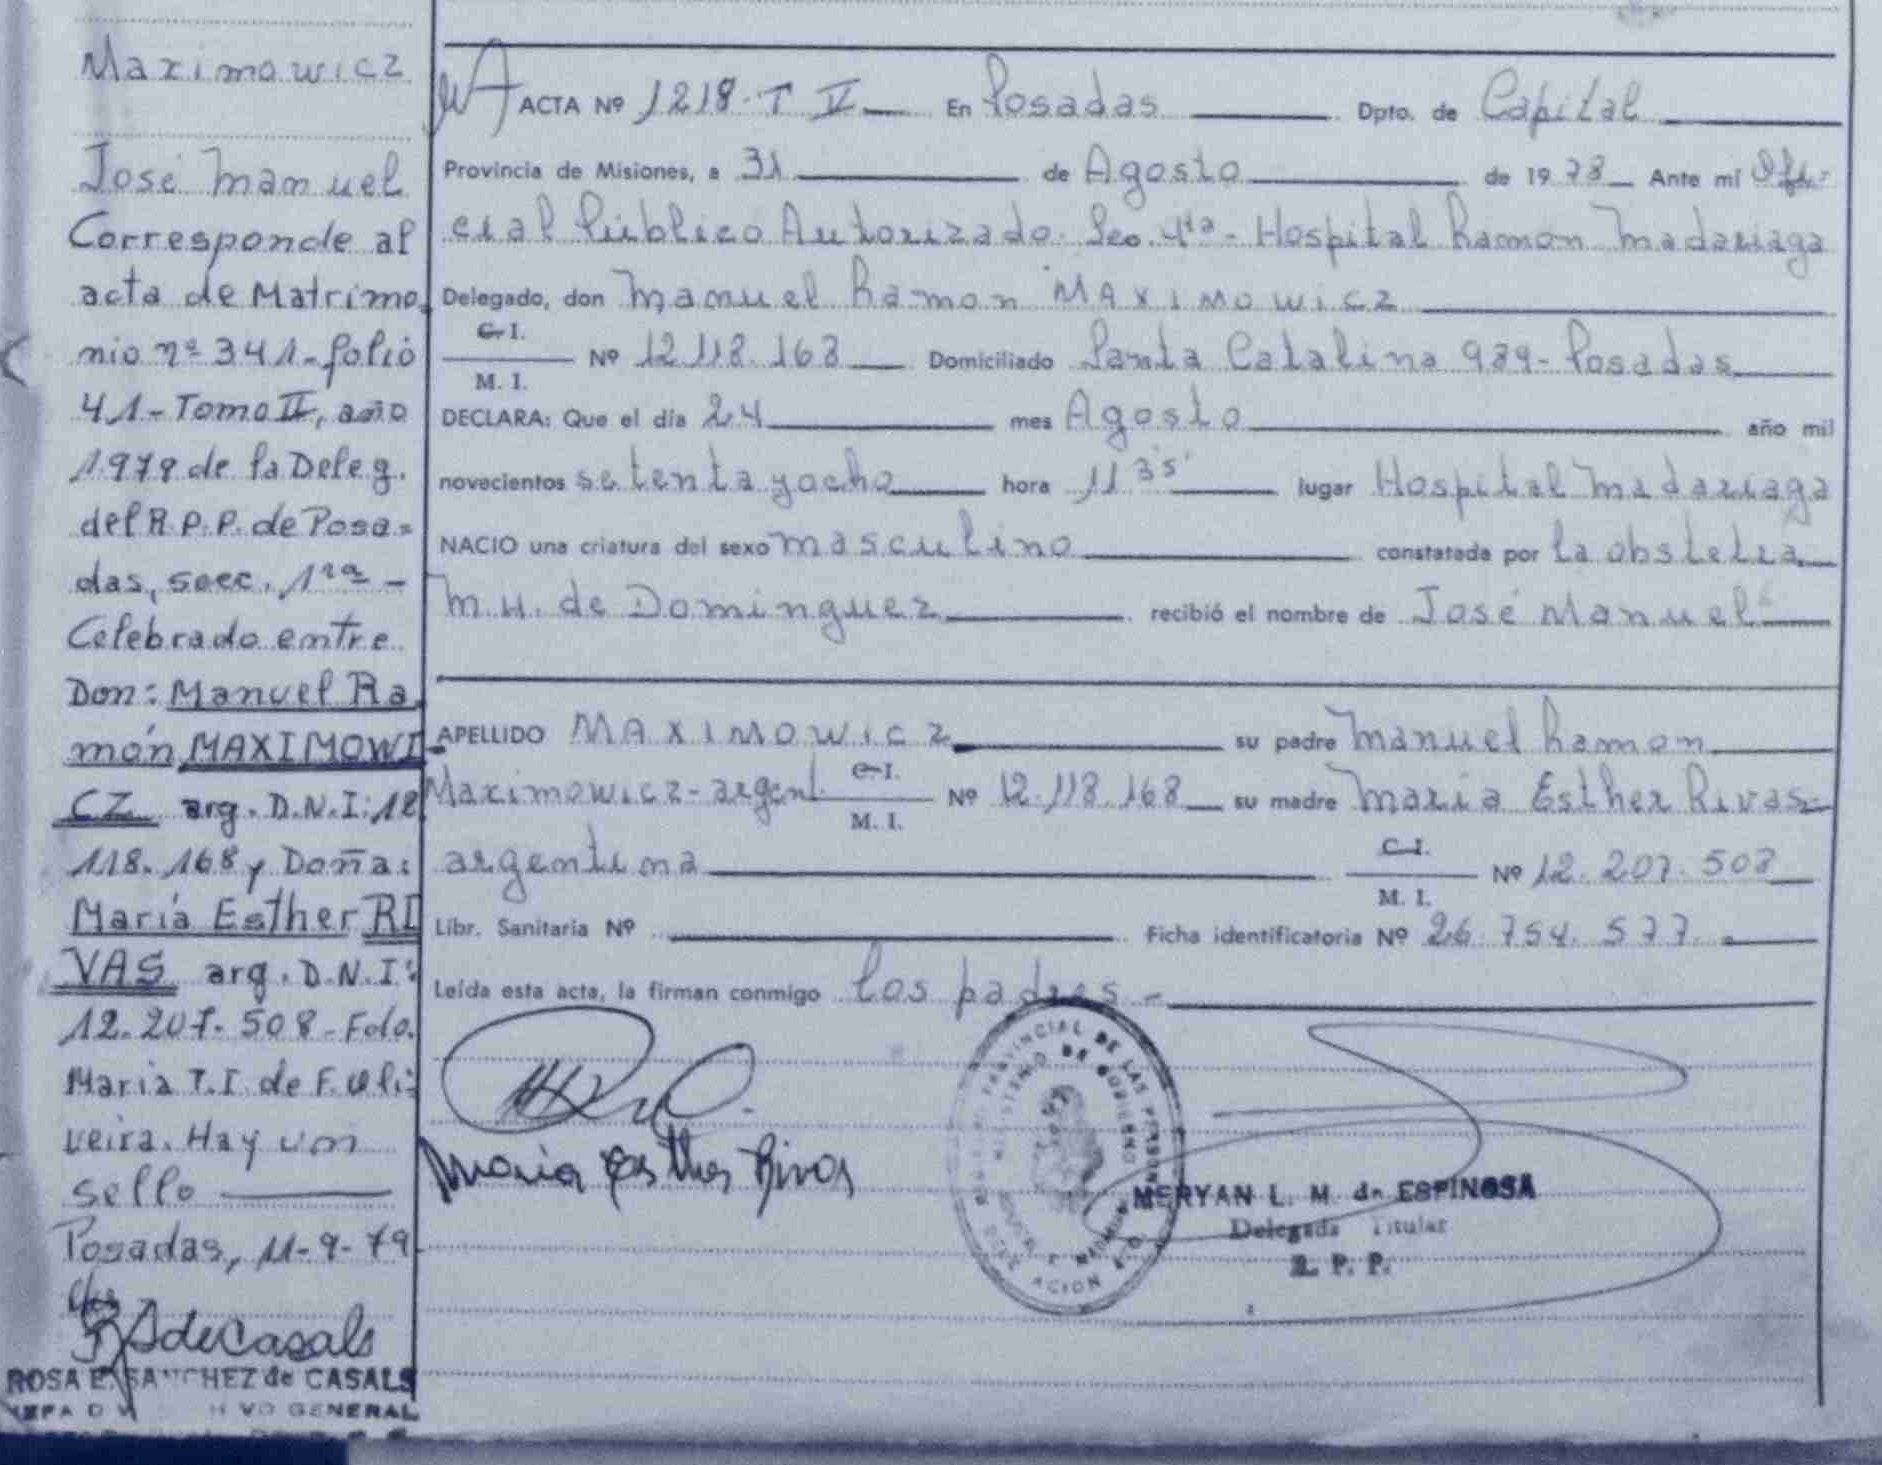 Maximowicz
José Manuel
Corresponde al
acta de Matrimo
nio nº 341-folio
41-Tomo II, año
1978 de la Deleg.
del R.P.P. de Posa=
das, secc. 1ra -
Celebrado entre
Don: Manuel Ra
món MAXIMOWI-
CZ arg. D.N.I: 12
118.168 y Doña:
María Esther RI
VAS arg. D.N.I:
12.207.508-Fdo.
María T.I. de F.
veira. Hay un
sello
Posadas, 11-9-79
RSdeCasals
ROSA E. SANCHEZ de CASALS
GENERAL
ACTA Nº 1218-T V En Posadas Dpto. de Capital
Provincia de Misiones, a 31 de Agosto de 1978 Ante mí Ofi=
cial Público Autorizado. Sec. 4ta - Hospital Ramon Madariaga
Delegado, don Manuel Ramon MAXIMOWICZ
C.I.
M. I. Nº 12.118.168 Domiciliado Santa Catalina 989-Posadas
DECLARA: Que el día 24 mes Agosto año mil
novecientos setenta y ocho hora 11 35' lugar Hospital Madariaga
NACIO una criatura del sexo masculino constatada por la obstetra
M.H. de Dominguez recibió el nombre de José Manuel
APELLIDO MAXIMOWICZ su padre Manuel Ramon
Maximowicz-argent. C.I. M. I. Nº 12.118.168 su madre Maria Esther Rivas-
argentina C.I. M. I. Nº 12.207.508
Libr. Sanitaria Nº Ficha identificatoria Nº 26.754.577
Leída esta acta, la firman conmigo los padres -
Maria Esther Rivas
PROVINCIAL DE LAS PERSONAS
MINISTERIO DE GOBIERNO
MERYAN L. M. de ESPINOSA
Delegada Titular
R. P. P.